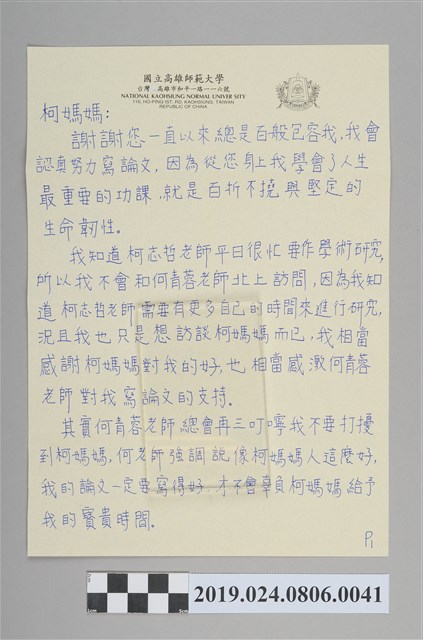 國立高雄師範大學
台灣 高雄市和平一路一一六號
NATIONAL KAOHSIUNG NORMAL UNIVER SITY
116, HO-PING 1ST. RD. KAOHSIUNG, TAIWAN
REPUBLIC OF CHINA
柯媽媽:
謝謝您一直以來總是百般包容我,我會
認真努力寫論文,因為從您身上我學會了人生
最重要的功課,就是百折不撓與堅定的
生命韌性。
我知道柯志哲老師平日很忙要作學術研究,
所以我不會和何青蓉老師北上訪問,因為我知
道柯志哲老師需要有更多自己的時間來進行研究,
況且我也只是想訪談柯媽媽而已,我相當
感謝柯媽媽對我的好,也相當感激何青蓉
老師對我寫論文的支持。
其實何青蓉老師總會再三叮嚀我不要打擾
到柯媽媽,何老師強調說,像柯媽媽人這麼好,
我的論文一定要寫得好,才不會辜負柯媽媽給予
我的寶貴時間。
P1
1cm
5cm
2019.024.0806.0041